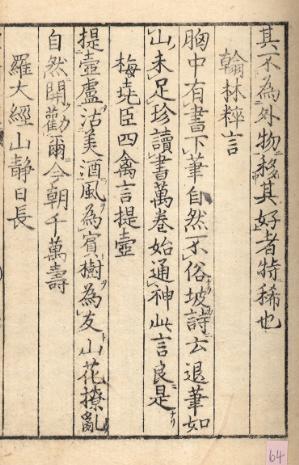 其不為外物移其好者特稀也
翰林粹言
胸中有書下筆自然不俗坡詩云退筆如
山未足珍讀書萬卷始通神此言良是
梅堯臣四禽言提壺
提壺盧沽美酒風為賓樹為友山花撩亂
自然開勸爾今朝千萬壽
羅大經山靜日長
64